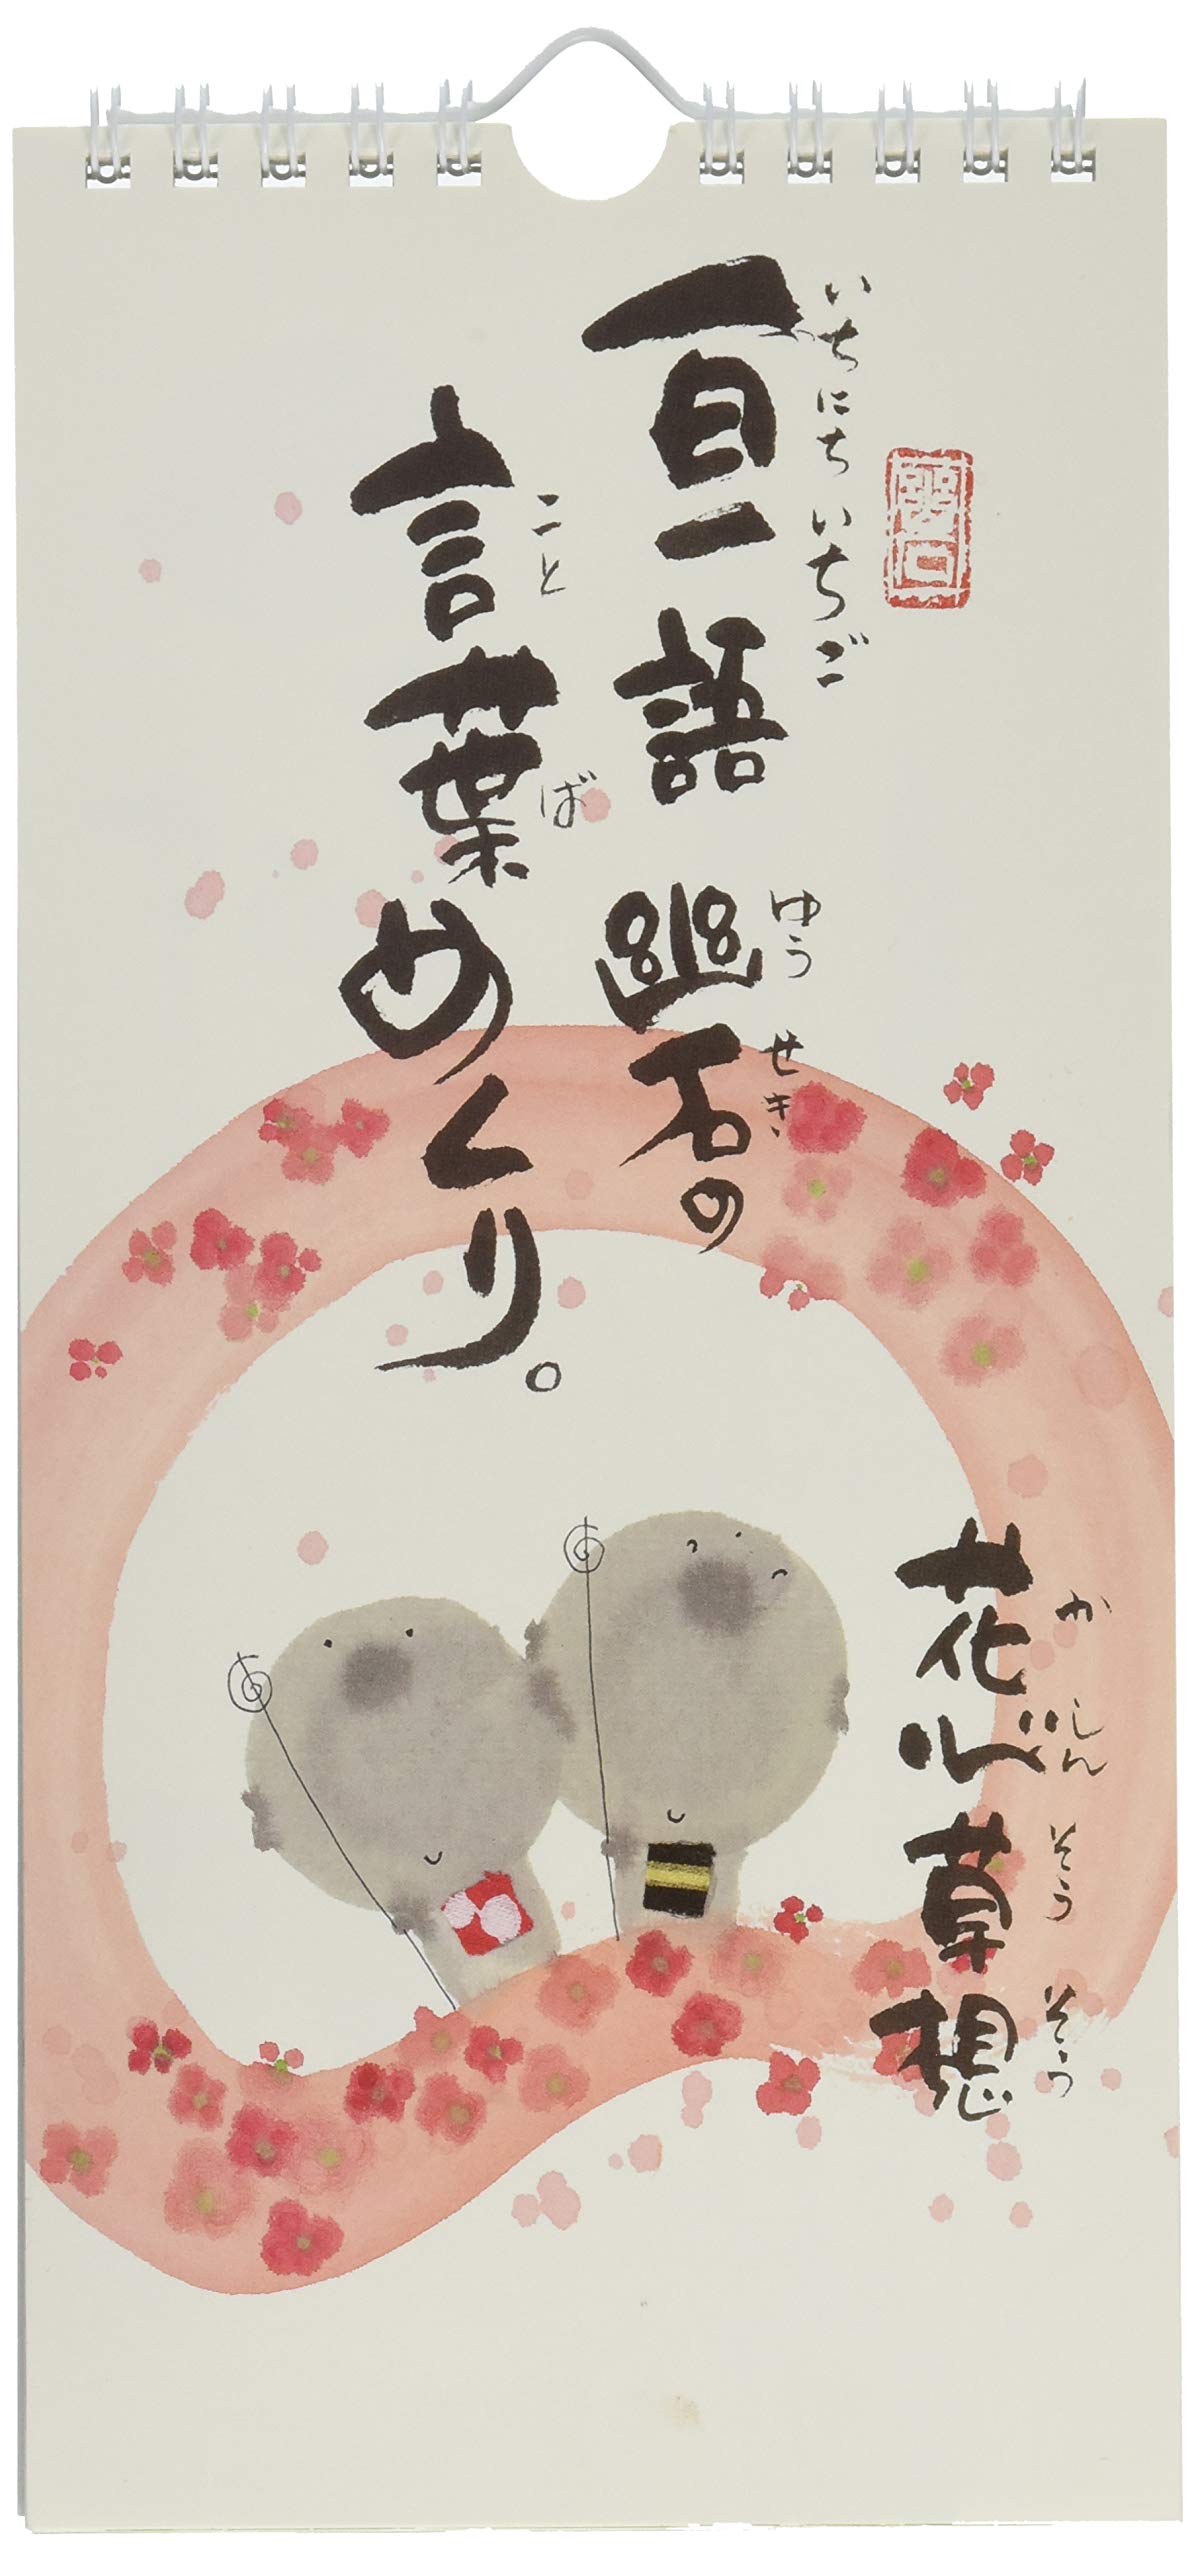 一日一語 幽石の
いちにちいちご
ゆうせき
言葉めくり。
ことば
花心草想
かしんそうそう
幽石